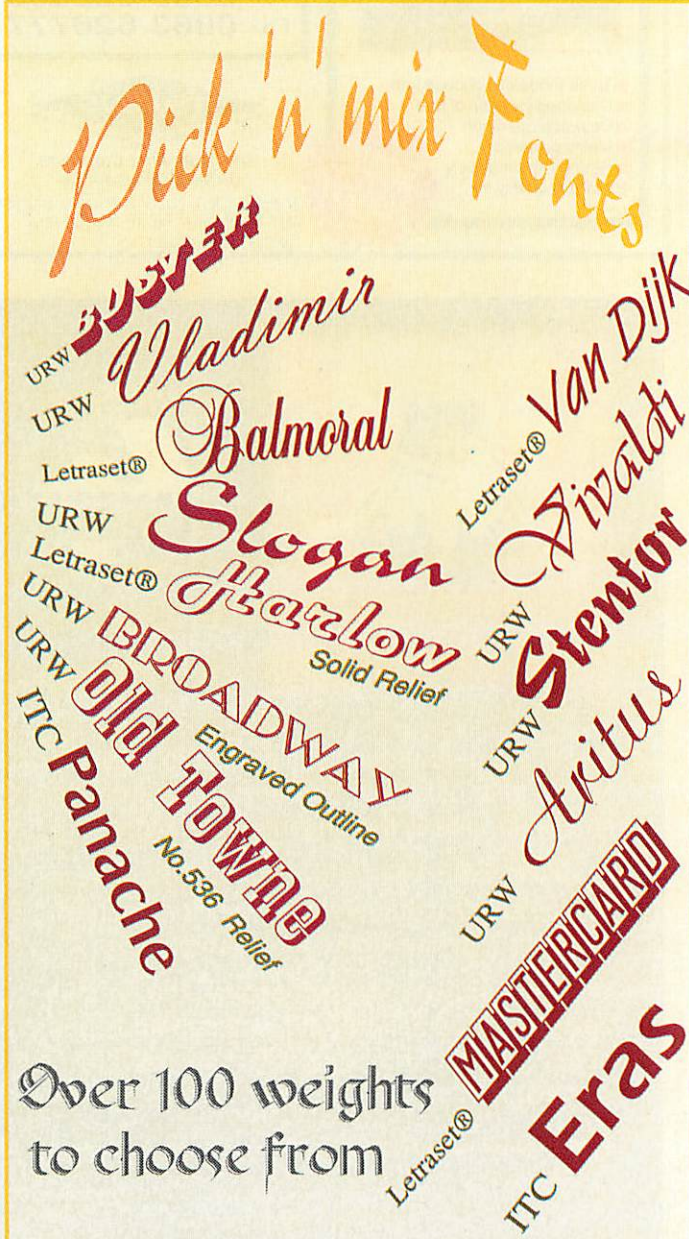 Pick 'n' mix Fonts
URW BUSTER
URW Vladimir
Letraset® Balmoral
URW Slogan
Letraset® Harlow
Solid Relief
URW BROADWAY
Engraved Outline
URW Old Towne
No.536 Relief
ITC Panache
Letraset® Van Dijk
URW Vivaldi
URW Stentor
URW Aritus
Letraset® MASTERCARD
ITC Eras
Over 100 weights
to choose from